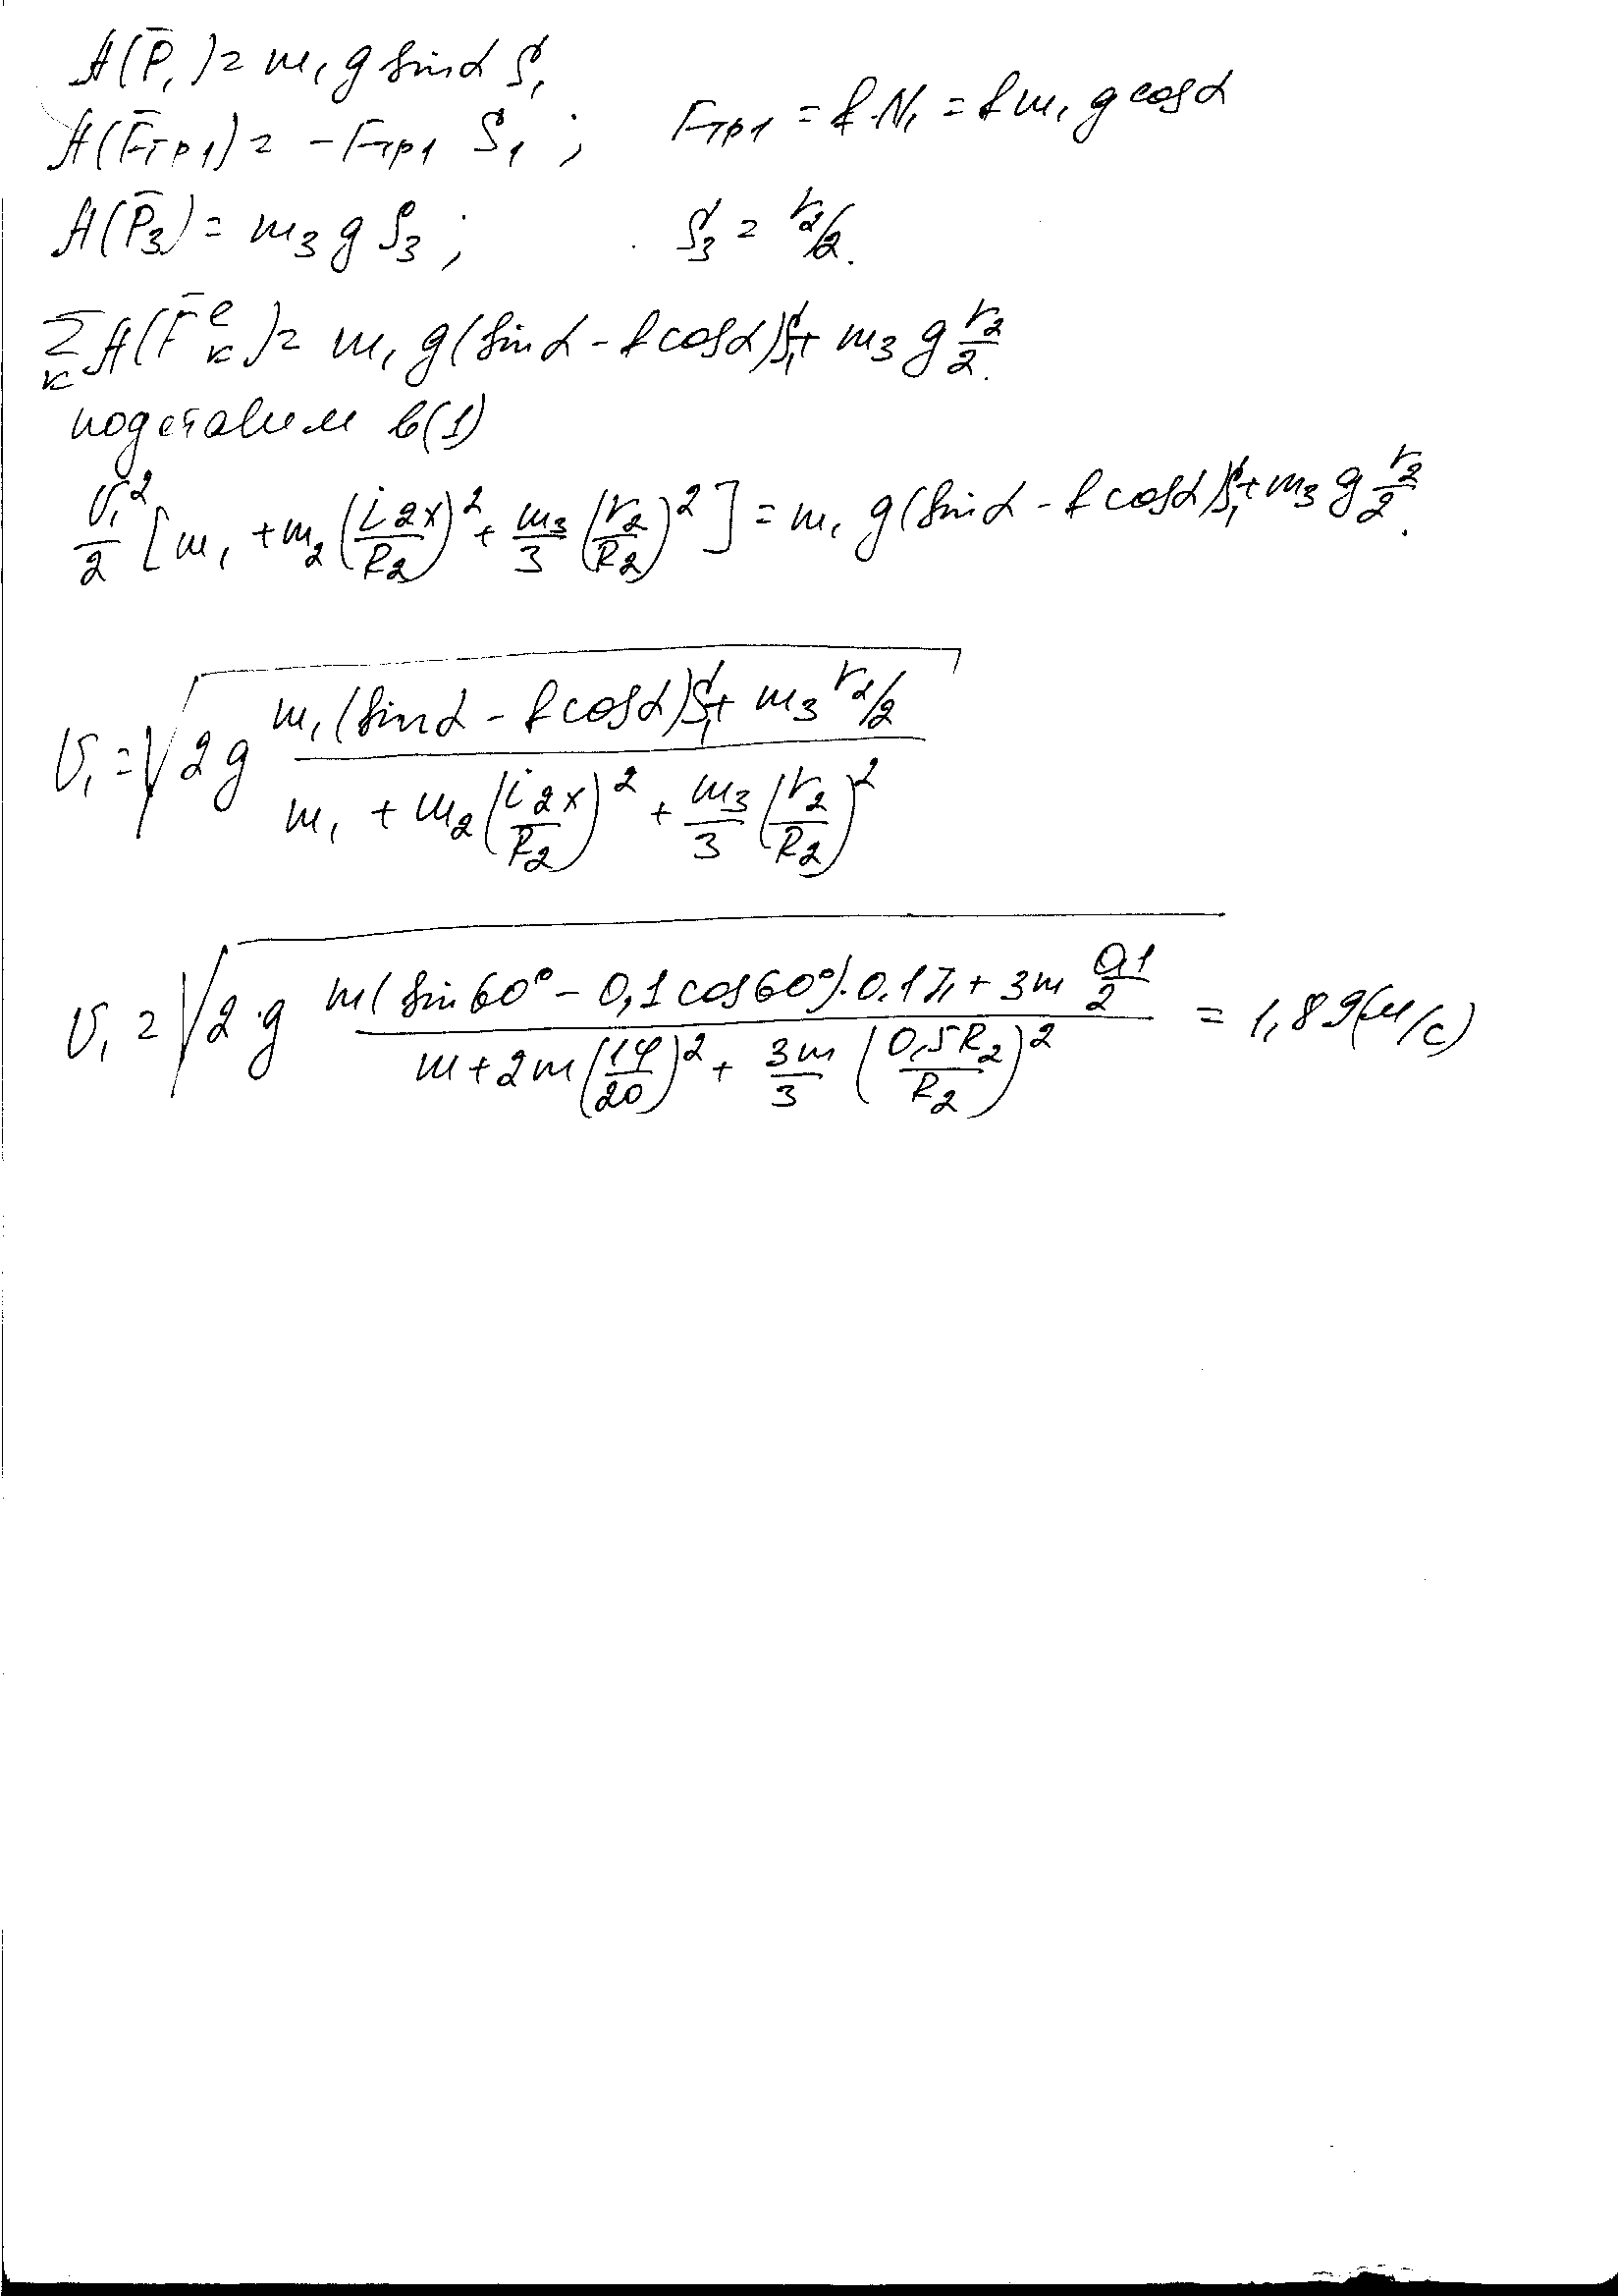 A(P̄₁) = m₁ g sinα S₁
A(F̄тр1) = -Fтр1 S₁ ; Fтр1 = f·N₁ = f m₁ g cosα
A(P̄₃) = m₃ g S₃ ; S₃ = r₂/2.
∑ₖ A(F̄ₖᵉ) = m₁ g (sinα - f cosα)S₁ + m₃ g r₂/2.
подставим в (1)
V₁²/2 [m₁ + m₂ (i₂ₓ/R₂)² + m₃/3 (r₂/R₂)²] = m₁ g (sinα - f cosα)S₁ + m₃ g r₂/2.
V₁ = √(2g (m₁(sinα - f cosα)S₁ + m₃ r₂/2) / (m₁ + m₂ (i₂ₓ/R₂)² + m₃/3 (r₂/R₂)²))
V₁ = √(2·g (m(sin60° - 0,1cos60°)·0.1π + 3m 0,1/2) / (m + 2m (14/20)² + 3m/3 (0,5R₂/R₂)²)) = 1,89(м/с)